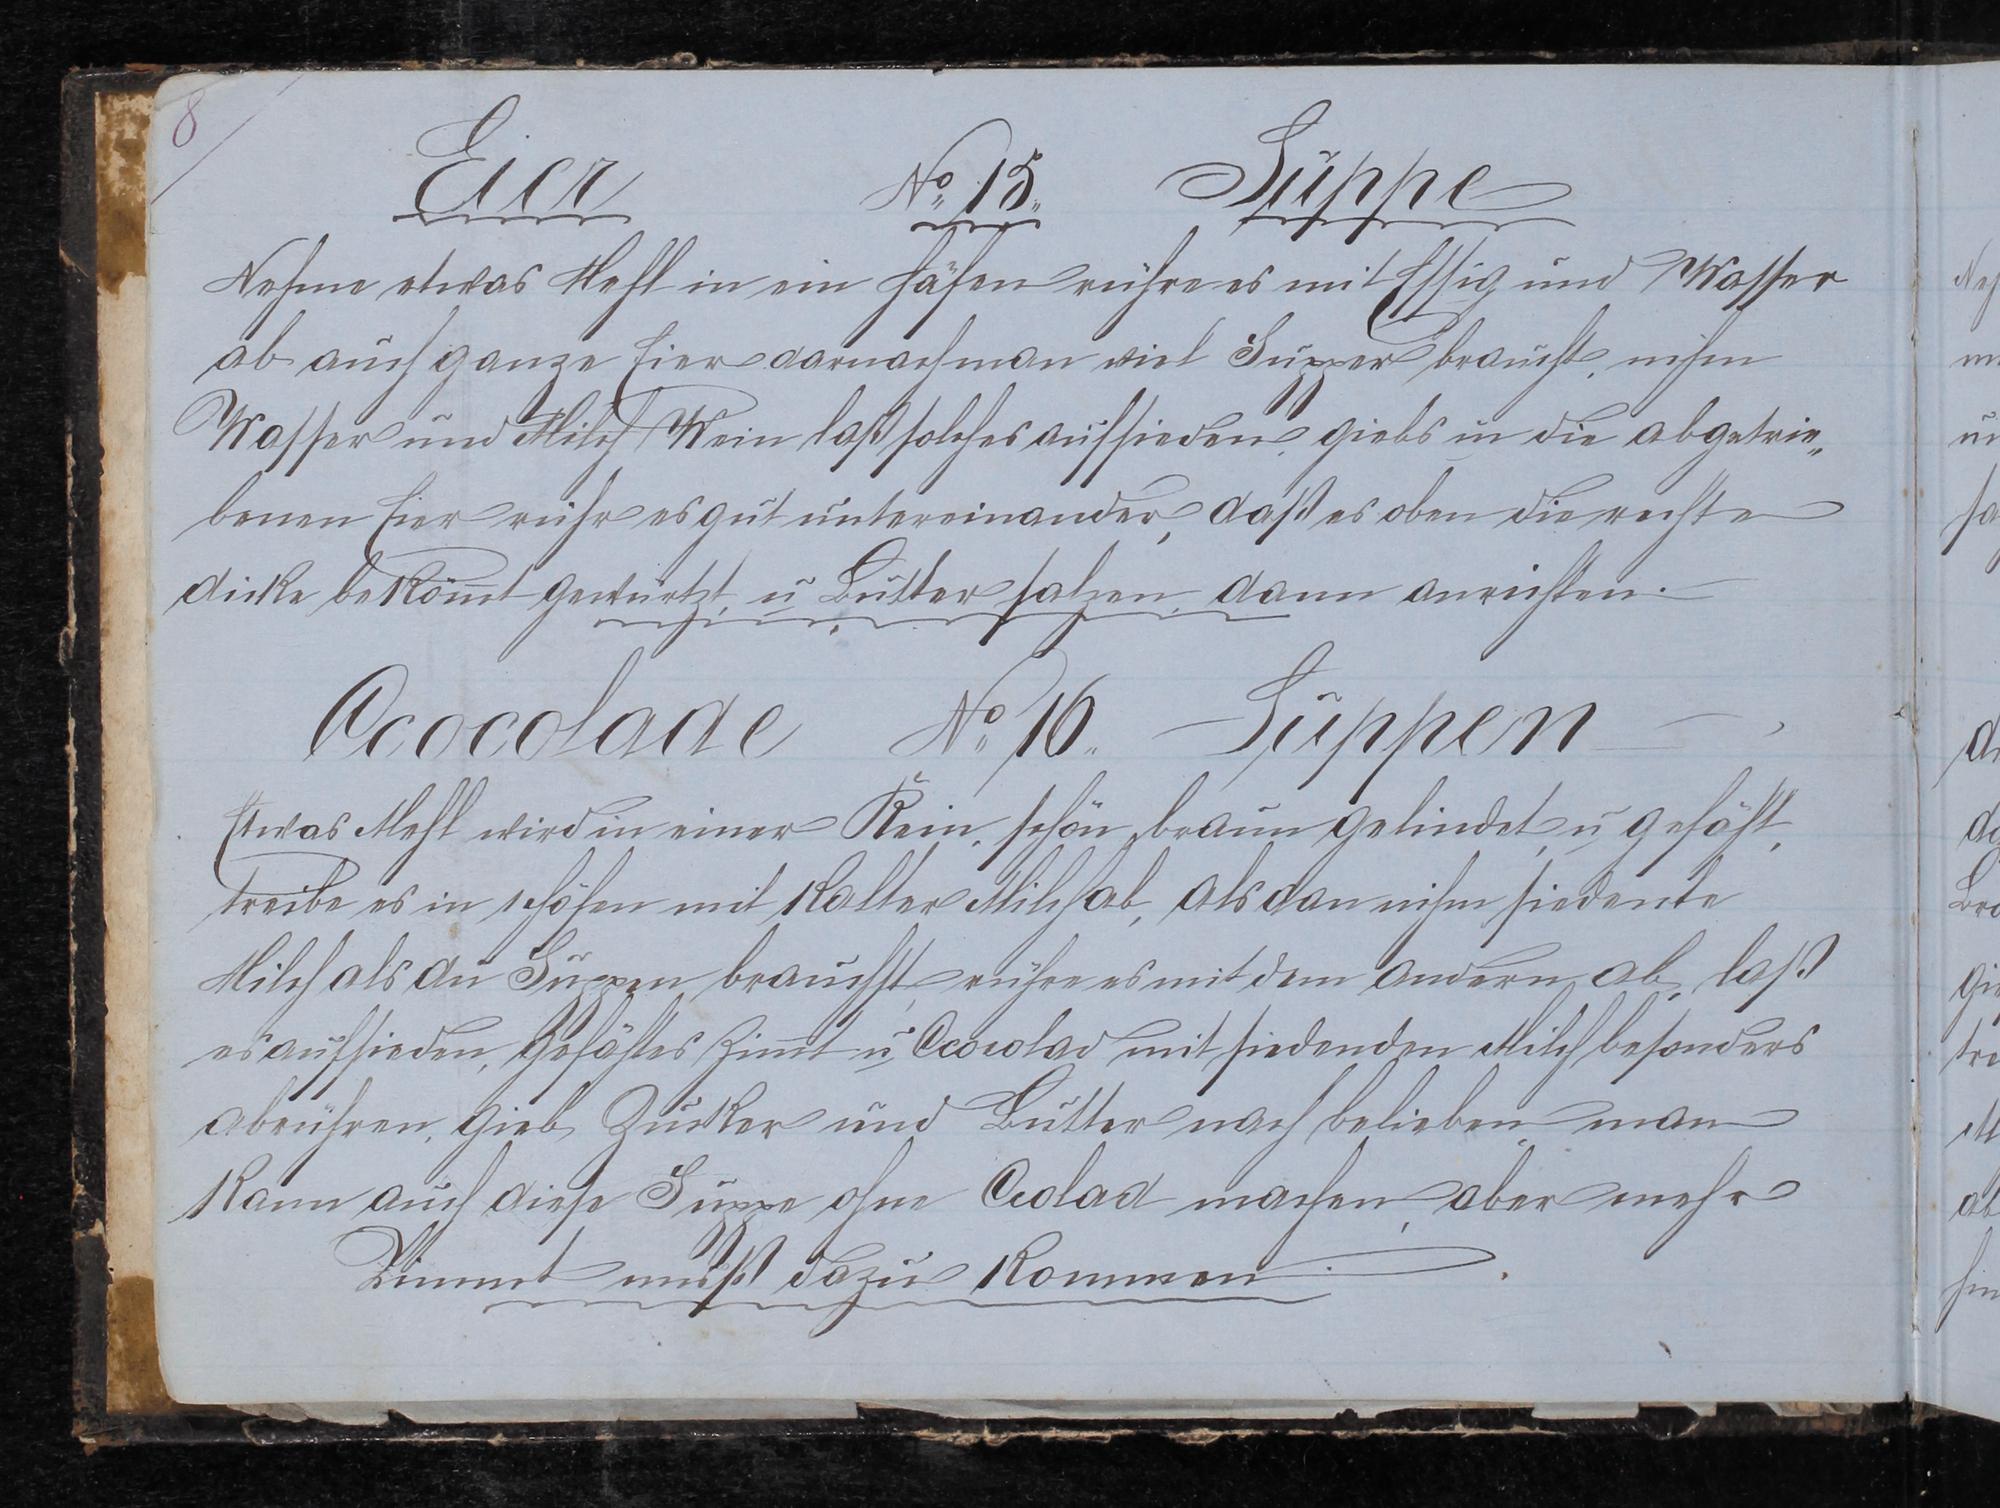 8
Eier No 15. Suppe
Nehme etwas Mehl in ein Häfen rühre es mit Essig und Wasser
ab auch ganze Eier darnach man viel Suppen braucht, nihm
Wasser und Milch Wein laß solches aufsieden, giebs in die abgetrie„
benen Eier rühr es gut untereinander, daß es oben die rechte
dicke bekömt gewürtzt, u Butter salzen, dann anrichten.
Cocolade No 16. Suppen
Etwas Mehl wird in einer Rein, schön braun gelindet, u gefäht,
treibe es in Höfen mit kalter Milch ab, als dan nihm siedente
Milch als du Suppen brauchst, rühre es mit dem andern ab, laß
es aufsieden, gefähtes Zimt u Cocolad mit siedenden Milch besonders
abrühren, gieb Zucker und Butter nach belieben man
kann auch diese Suppe ohne Colad machen, aber mehr
Zimmt muß dazu kommen